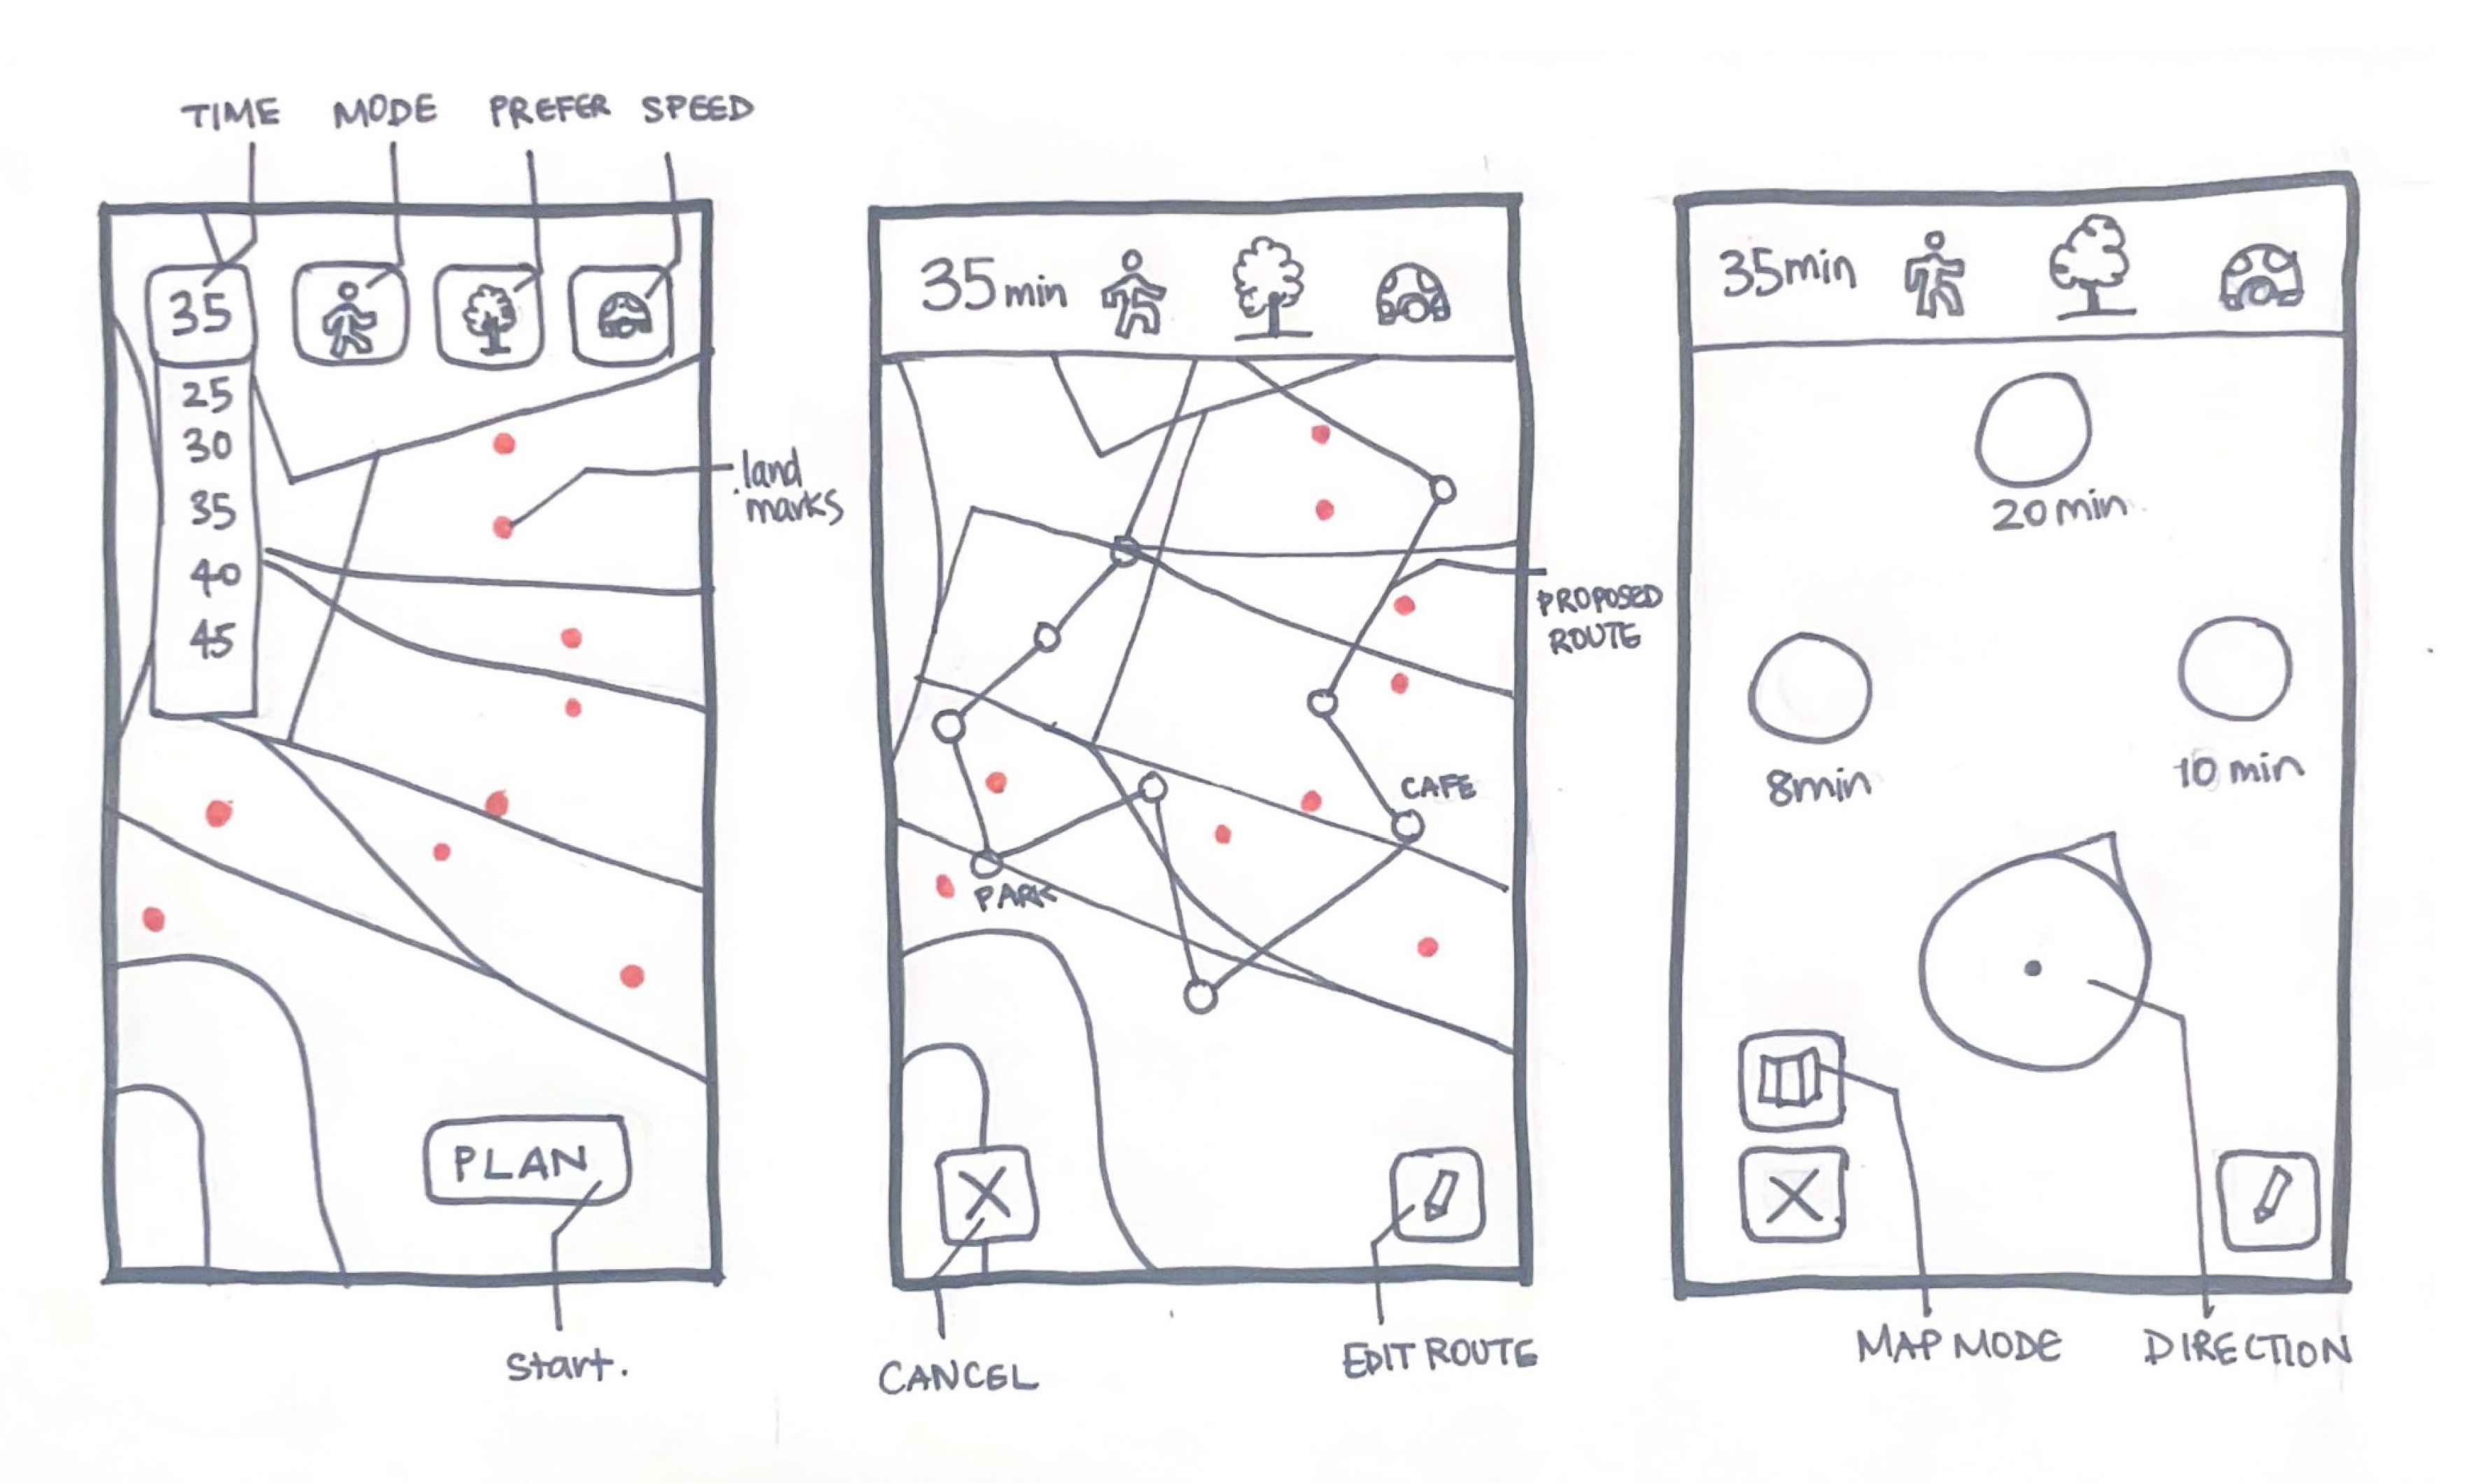 TIME MODE PREFER SPEED
35
25
30
35
40
45
land
marks
PLAN
Start.
35min
PROPOSED
ROUTE
CAFE
PARK
CANCEL
EDIT ROUTE
35min
20min
8min
10 min
MAP MODE
DIRECTION